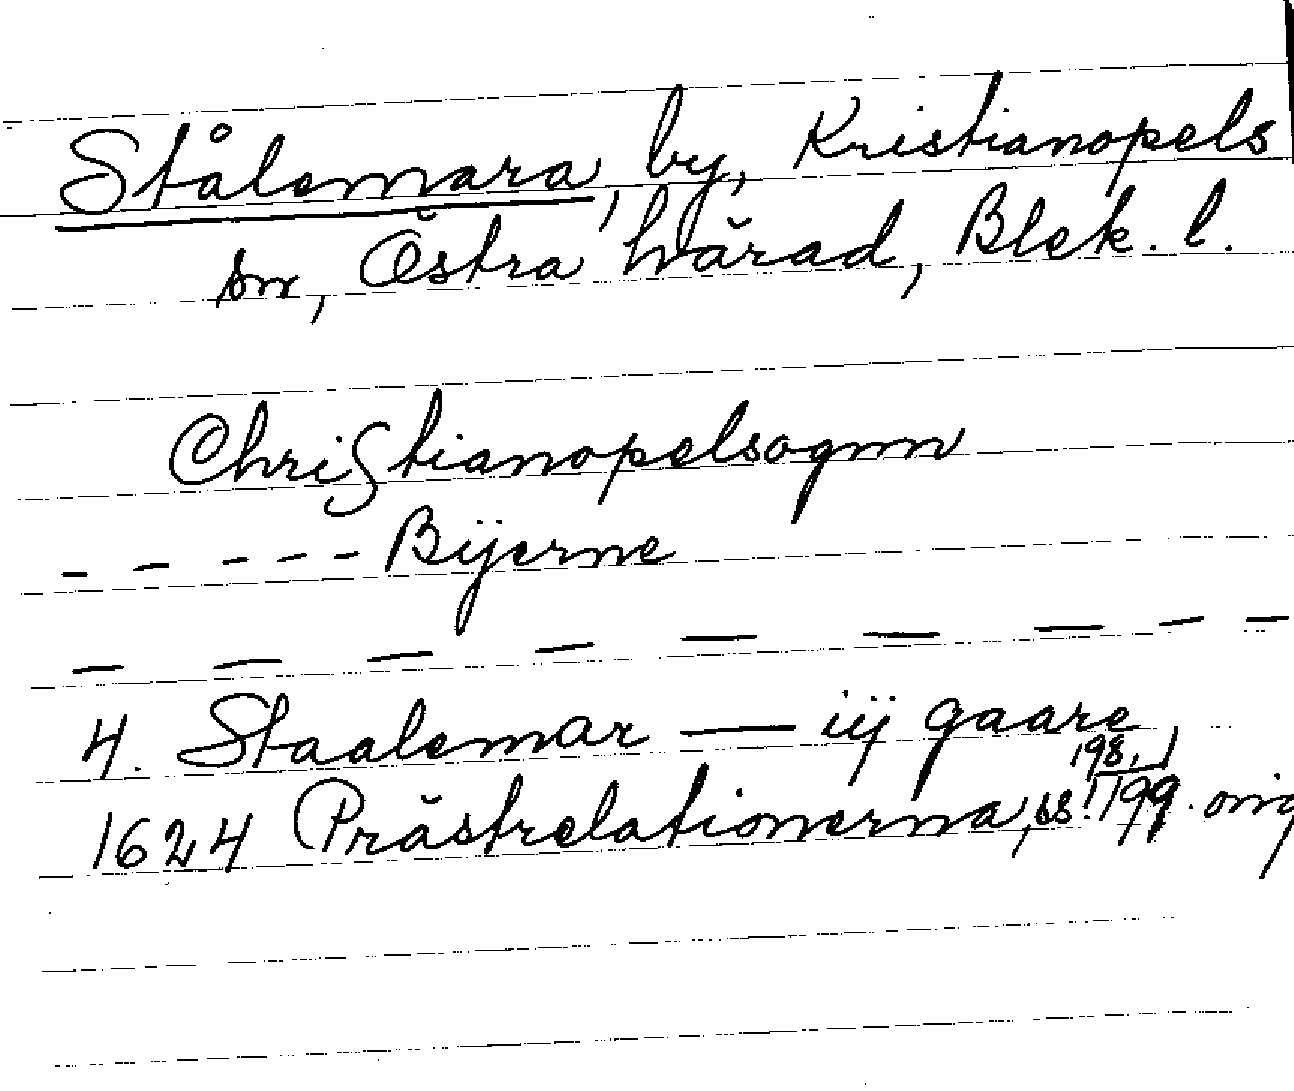 Stålemara, by, Kristianopels
sn, Östra härad, Blek. l.
Christianopelsognn
- - - - - Bÿerne
— — — — — — — — —
4. Staalemar — iij gaare
1624 Prästrelationerna, ss. 198, 199. orig